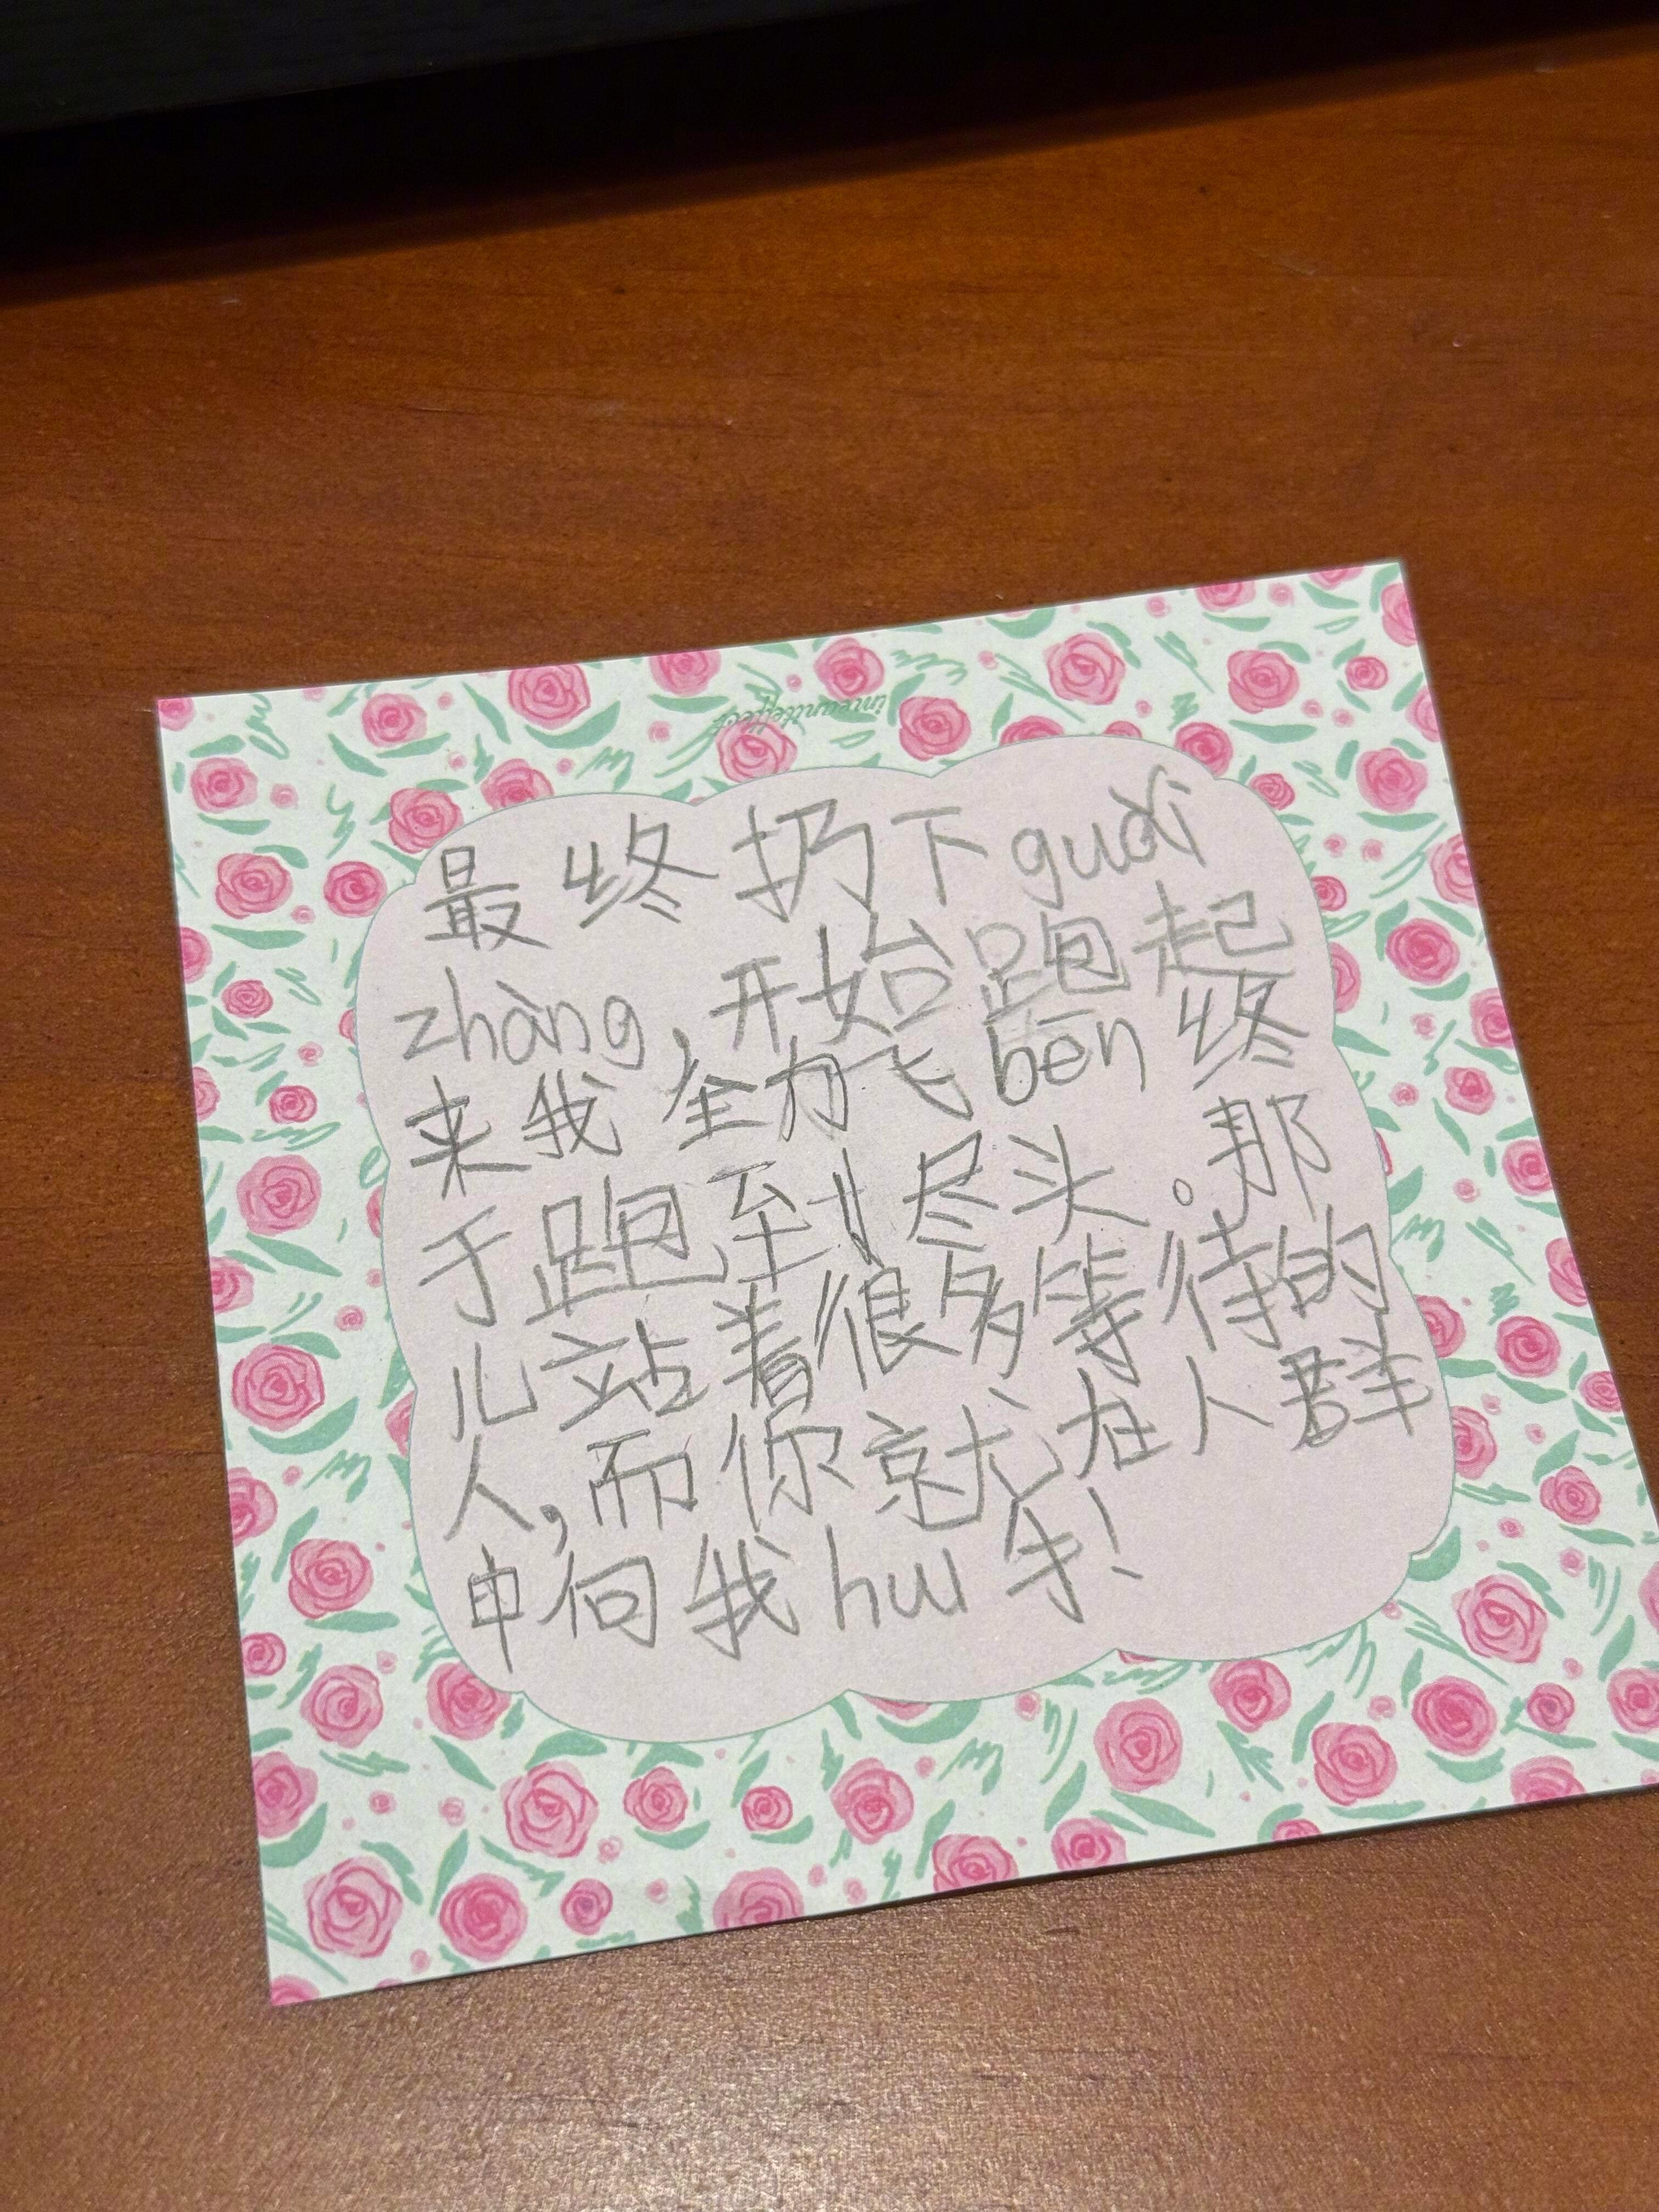 最终扔下guǎi
zhàng,开始跑起
来我全力飞ben终
于跑到尽头。那
儿站着很多等待的
人,而你就在人群
中向我hui手!